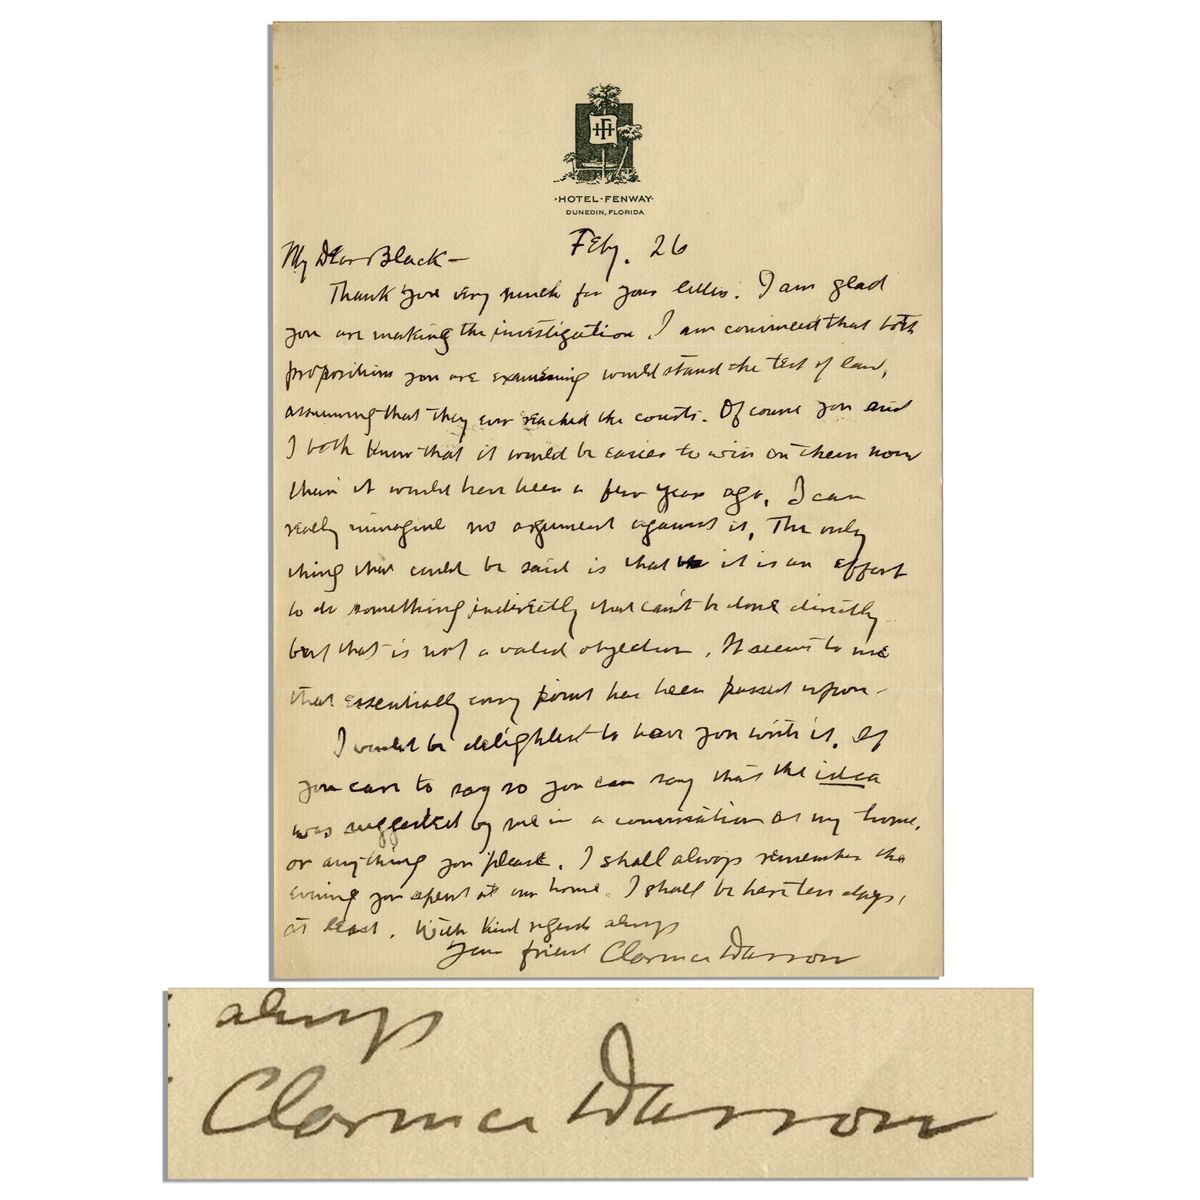 HF
·HOTEL·FENWAY·
DUNEDIN, FLORIDA
Feby. 26
My Dear Black —
Thank you very much for your letter. I am glad
you are making the investigation. I am convinced that both
propositions you are examining would stand the test of law,
assuming that they ever reached the courts. Of course you and
I both know that it would be easier to win on them now
than it would have been a few years ago. I can
really imagine no argument against it. The only
thing that could be said is that it is an effort
to do something indirectly that can't be done directly
but that is not a valid objection. It seems to me
that essentially every point has been passed upon.
I would be delighted to have you write it. If
you care to say so you can say that the idea
was suggested by me in a conversation at my home,
or anything you please. I shall always remember the
evening you spent at our home. I shall be here ten days,
at least. With kind regards always
Your friend Clarence Darrow
always
Clarence Darrow